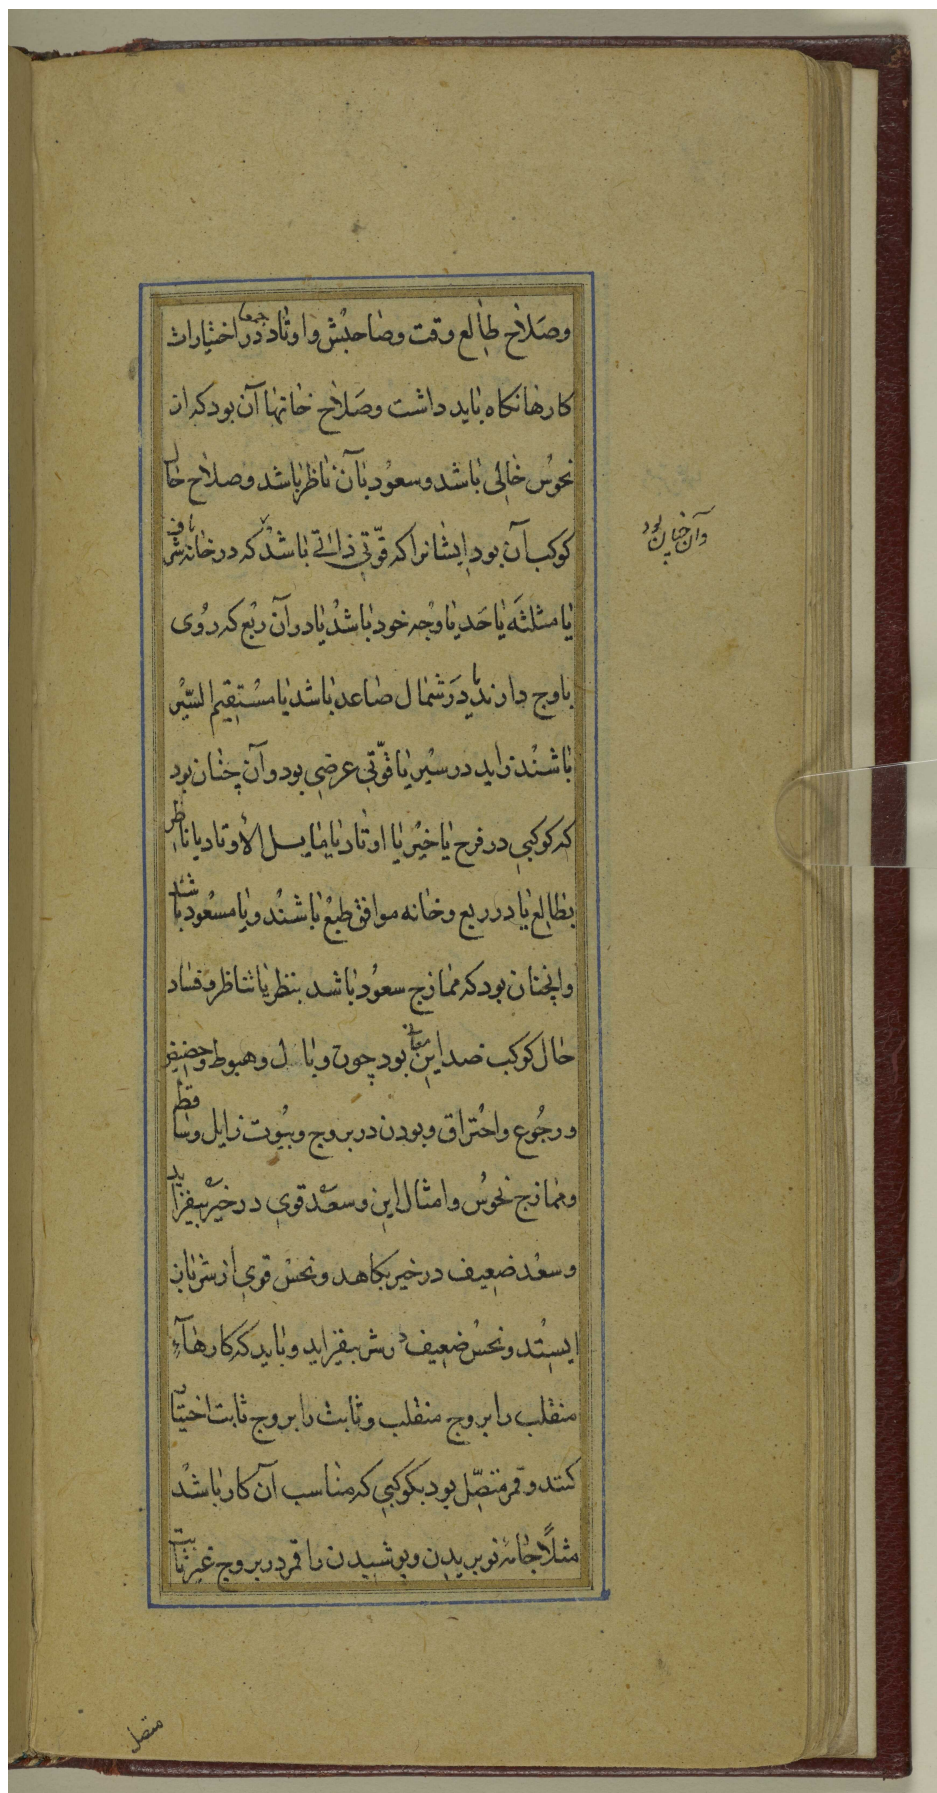 وصلاح طالع وقت وصاحبش واوتاد در جمعا اختیارات
کارها نکاه باید داشت وصلاح خانها آن بود که از
نحوس خالی باشد وسعود بآن ناظر باشد وصلاح حال
کوکب آن بود ایشانرا که قوّتی ذاتی باشد که در خانه یا شرف
یا مثلثه یا حد یا وجه خود باشد یا در آن ربع که روی
باوج دارند یا در شمال صاعد باشد یا مستقیم السّیر
باشند زاید در سیر یا قوّتی عرضی بود وآن چنان بود
که کوکبی در فرح یا خیر یا اوتاد یا مایل الأوتاد یا ناظر
بطالع یا در ربع وخانه موافق طبع باشند ویا مسعود باشند
وانچنان بود که ممازج سعود باشد بنظر یا تناظر وفساد
حال کوکب ضد این معانی بود چون وبال وهبوط وحضیض
ورجوع واحتراق وبودن در بروج وبیوت زایل وساقط
وممازج نحوس وامثال این وسعد قوی در خیر بیفزاید
وسعد ضعیف در خیر بکاهد ونحس قوی از شر باز
ایستد ونحس ضعیف در شر بیفزاید وباید که کارهآء
منقلب را بروج منقلب وثابت را بروج ثابت اختیار
کنند وقمر متصّل بود بکوکبی که مناسب آن کار باشد
مثلاً جامۀ نو بریدن وپوشیدن را قمر در بروج غیر ثابت
وآن چنان بود
متصل